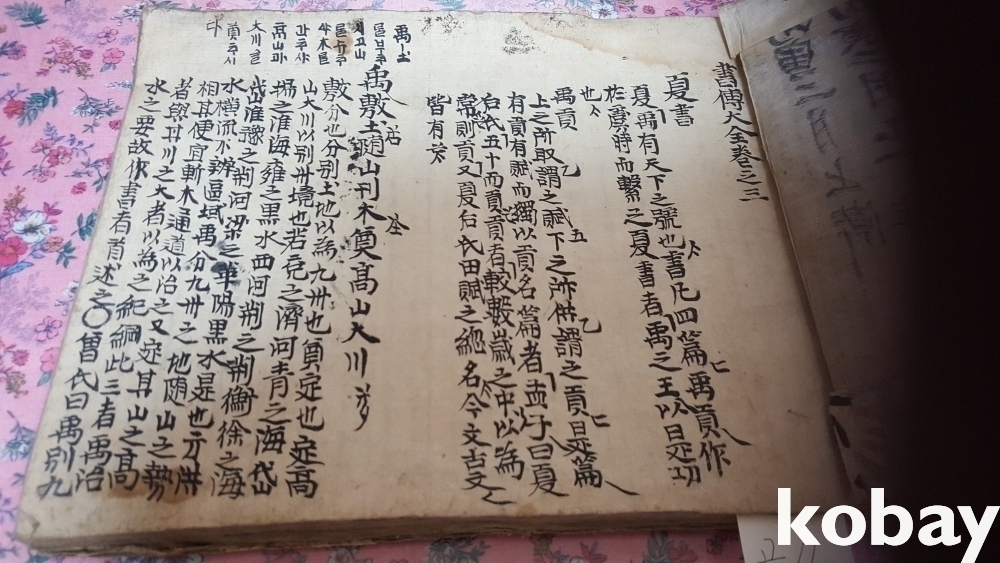 書傳大全卷之三
夏書
夏禹有天下之號也書凡四篇禹貢作
於虞時而繫之夏書者禹之王以是功
也
禹貢
上之所取謂之賦下之所供謂之貢是篇
有貢有賦而獨以貢名篇者孟子曰夏
后氏五十而貢貢者較數歲之中以為
常則貢又夏后氏田賦之總名今文古文
皆有
禹敷土隨山刊木奠高山大川
敷分也分別土地以為九州也奠定也定高
山大川以別州境也若兗之濟河青之海岱
揚之淮海雍之黑水西河荊之荊衡徐之海
岱淮豫之荊河梁之華陽黑水是也方洪
水橫流不辨區域禹分九州之地隨山之勢
相其便宜斬木通道以治之又定其山之高
者與其川之大者以為之紀綱此三者禹治
水之要故作書者首述之〇曾氏曰禹別九
kobay